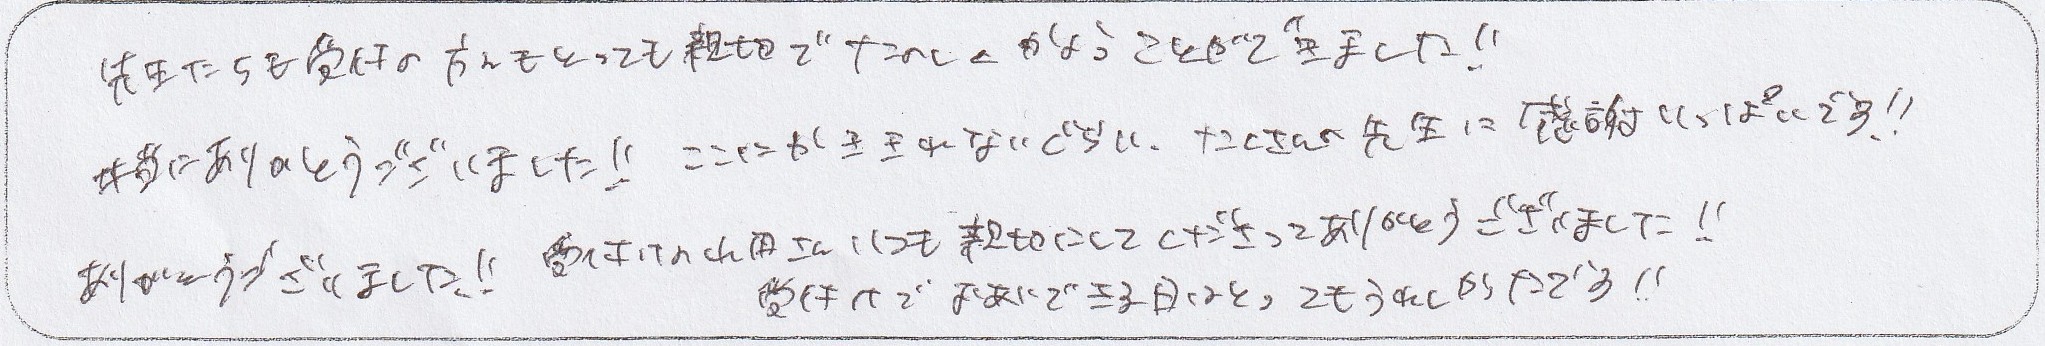 先生たちも受付の方々もとっても親切でたのしくかようことができました!!
本当にありがとうございました!! ここにかききれないぐらい、たくさんの先生に感謝いっぱいです!!
ありがとうございました!! 受付けの さんいつも親切にしてくださってありがとうございました!!
受付けでお会いできる日はとってもうれしかったです!!